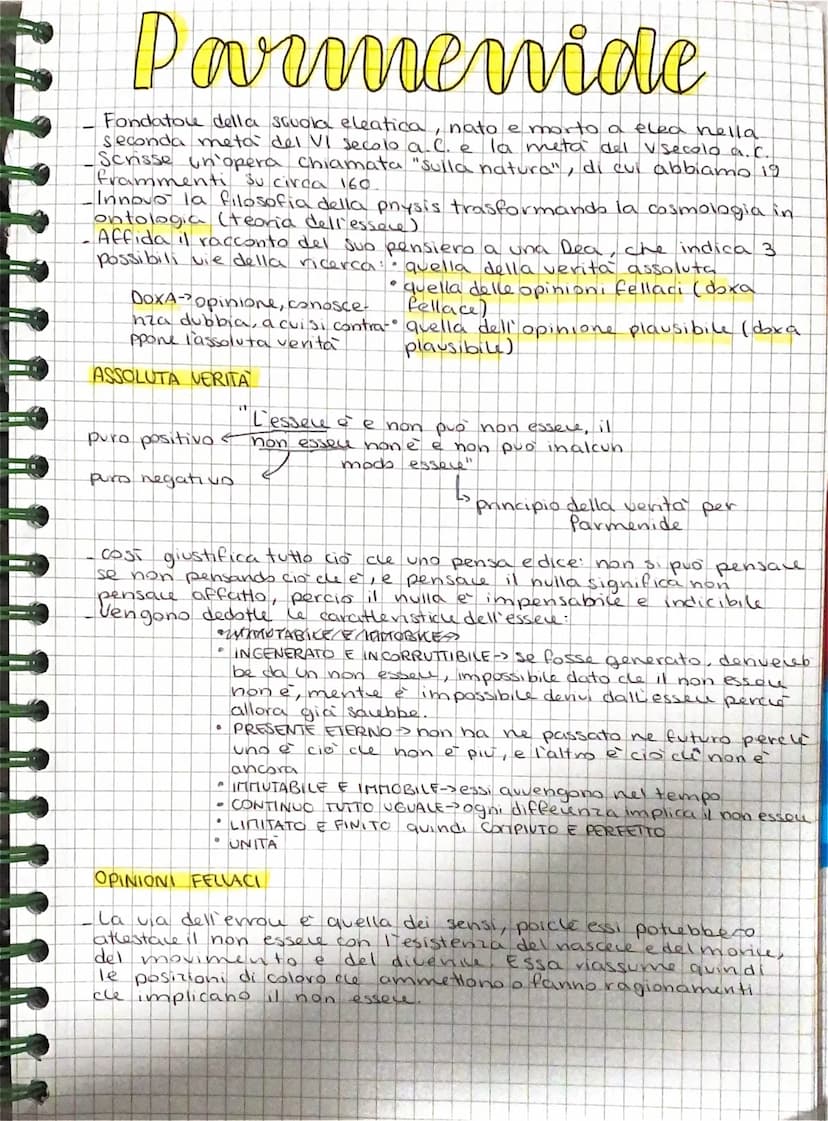 Parmenide
- Fondatore della scuola eleatica, nato e morto a elea nella
seconda metà del VI secolo a.C. e la metà del V secolo a.C.
- Scrisse un'opera chiamata "sulla natura", di cui abbiamo 19
frammenti su circa 160.
- Innovò la filosofia della physis trasformando la cosmologia in
ontologia (teoria dell'essere)
- Affida il racconto del suo pensiero a una Dea, che indica 3
possibili vie della ricerca: • quella della verità assoluta
• quella delle opinioni fellaci (doxa
fellace)
DOXA → opinione, conosce-
nza dubbia, a cui si contra-
ppone l'assoluta verità
• quella dell'opinione plausibile (doxa
plausibile)
ASSOLUTA VERITÀ
"L'essere è e non può non essere, il
puro positivo ← non essere non è e non può in alcun
modo essere"
puro negativo
↳ principio della verità per
Parmenide
- così giustifica tutto ciò che uno pensa e dice: non si può pensare
se non pensando ciò che è, e pensare il nulla significa non
pensare affatto, perciò il nulla è impensabile e indicibile
- Vengono dedotte le caratteristiche dell'essere:
• IMMUTABILE E IMMOBILE →
• INGENERATO E INCORRUTTIBILE → se fosse generato, derivereb
be da un non essere, impossibile dato che il non essere
non è, mentre è impossibile derivi dall'essere perché
allora già sarebbe.
• PRESENTE ETERNO → non ha ne passato ne futuro perché
uno è ciò che non è più, e l'altro è ciò che non è
ancora
• IMMUTABILE E IMMOBILE → essi avvengono nel tempo
• CONTINUO TUTTO UGUALE → ogni differenza implica il non essere
• LIMITATO E FINITO quindi COMPIUTO E PERFETTO
• UNITÀ
OPINIONI FELLACI
- La via dell'errore è quella dei sensi, poiché essi potrebbero
attestare il non essere con l'esistenza del nascere e del morire,
del movimento e del divenire. Essa riassume quindi
le posizioni di coloro che ammettono o fanno ragionamenti
che implicano il non essere.